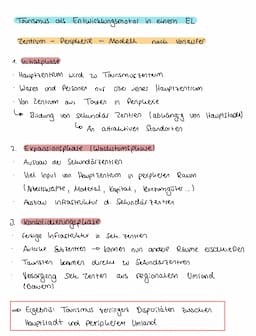 Tourismus als Entwicklungsmotor in einem EL
Zentrum - Peripherie - Modell nach Vorlaufer
1. Initialphase
· Hauptzentrum wird zu Tourismuszentrum
· Waren und Personen nur über dieses Hauptzentrum
· Von Zentrum aus Touren in Peripherie
↳ Bildung von sekundär Zentren (abhängig von Hauptstadt)
↳ An attraktiven Standorten
2. Expansionsphase (Wachstumsphase)
· Ausbau der Sekundärzentren
· Viel Input von Hauptzentrum in peripheren Raum
(Arbeitskräfte, Material, Kapital, Nahrungsmittel...)
· Ausbau Infrastruktur d. Sekundärzentren
3. Konsolidierungsphase
· Fertige Infrastruktur d. Sek. Zentren
· Autarke Subzentren → können nun andere Räume erschließen
· Touristen kommen direkt zu Sekundärzentren
· Versorgung Sek. Zentren aus regionalem Umland
(Bauern)
⇒ Ergebnis: Tourismus verringert Disparitäten zwischen
Hauptstadt und peripherem Umland